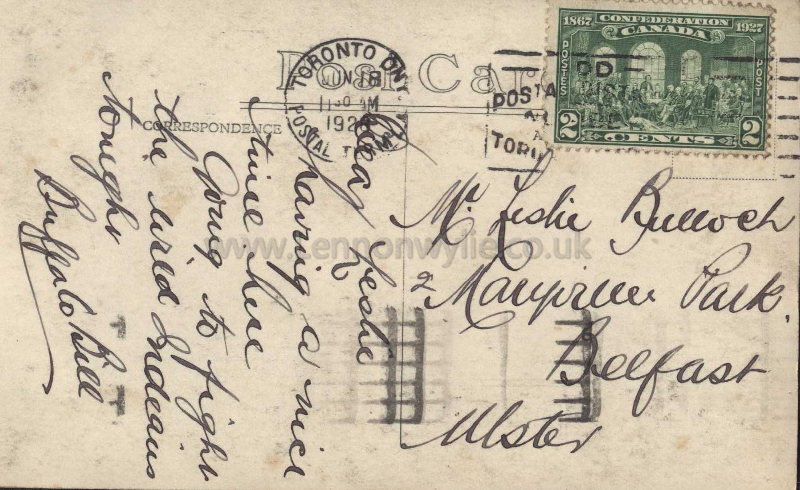 Post Car
CORRESPONDENCE
TORONTO ONT
JUN 18
11 30 AM
192
POSTAL TERM
1867 CONFEDERATION 1927
CANADA
POSTES
POST
2 CENTS 2
POSTA
TORO
Dear Leslie
having a nice
time here
Going to fight
the wild Indians
tonight
Buffalo Bill
Mr Leslie Bulloch
2 Park.
Belfast
Ulster
www.lennonwylie.co.uk